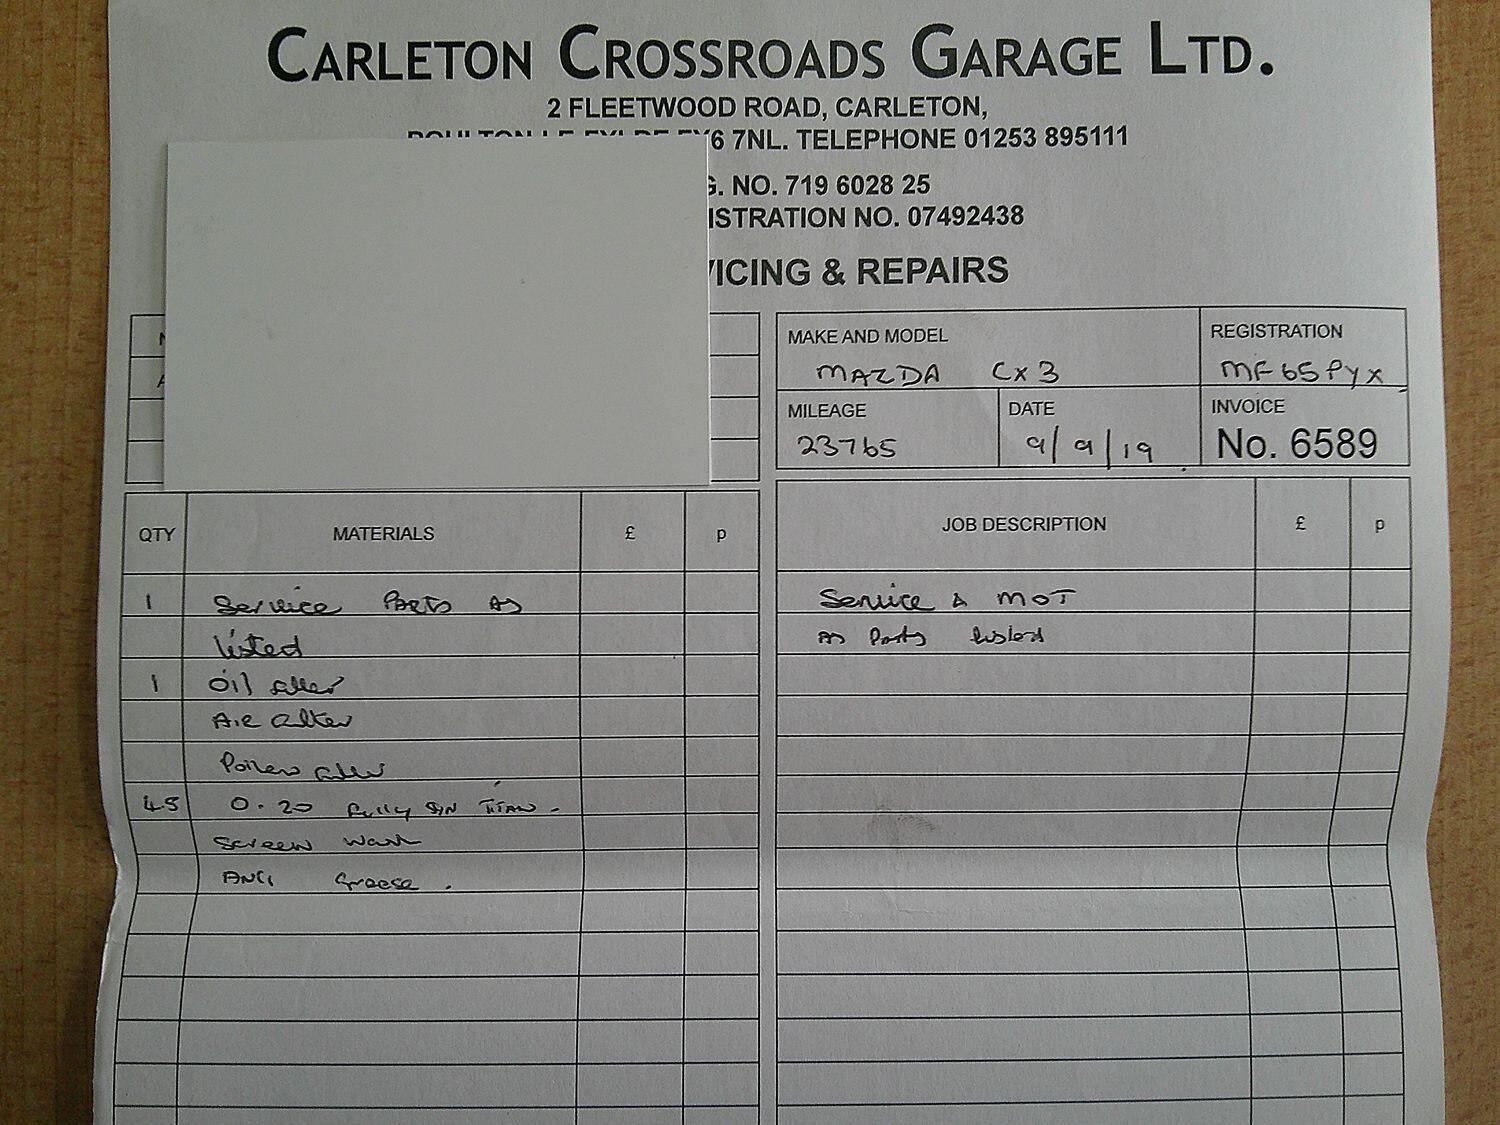 CARLETON CROSSROADS GARAGE LTD.
2 FLEETWOOD ROAD, CARLETON,
6 7NL. TELEPHONE 01253 895111
. NO. 719 6028 25
ISTRATION NO. 07492438
ICING & REPAIRS
MAKE AND MODEL
MAZDA CX3
REGISTRATION
MF65PYX
MILEAGE
23765
DATE
9/9/19
INVOICE
No. 6589
QTY MATERIALS £ p
1 Service Parts as
listed
1 Oil filter
Air filter
Pollen filter
4.5 0.20 fully syn Titan.
Screen wash
Anti Grease.
JOB DESCRIPTION £ p
Service & MOT
as Parts listed